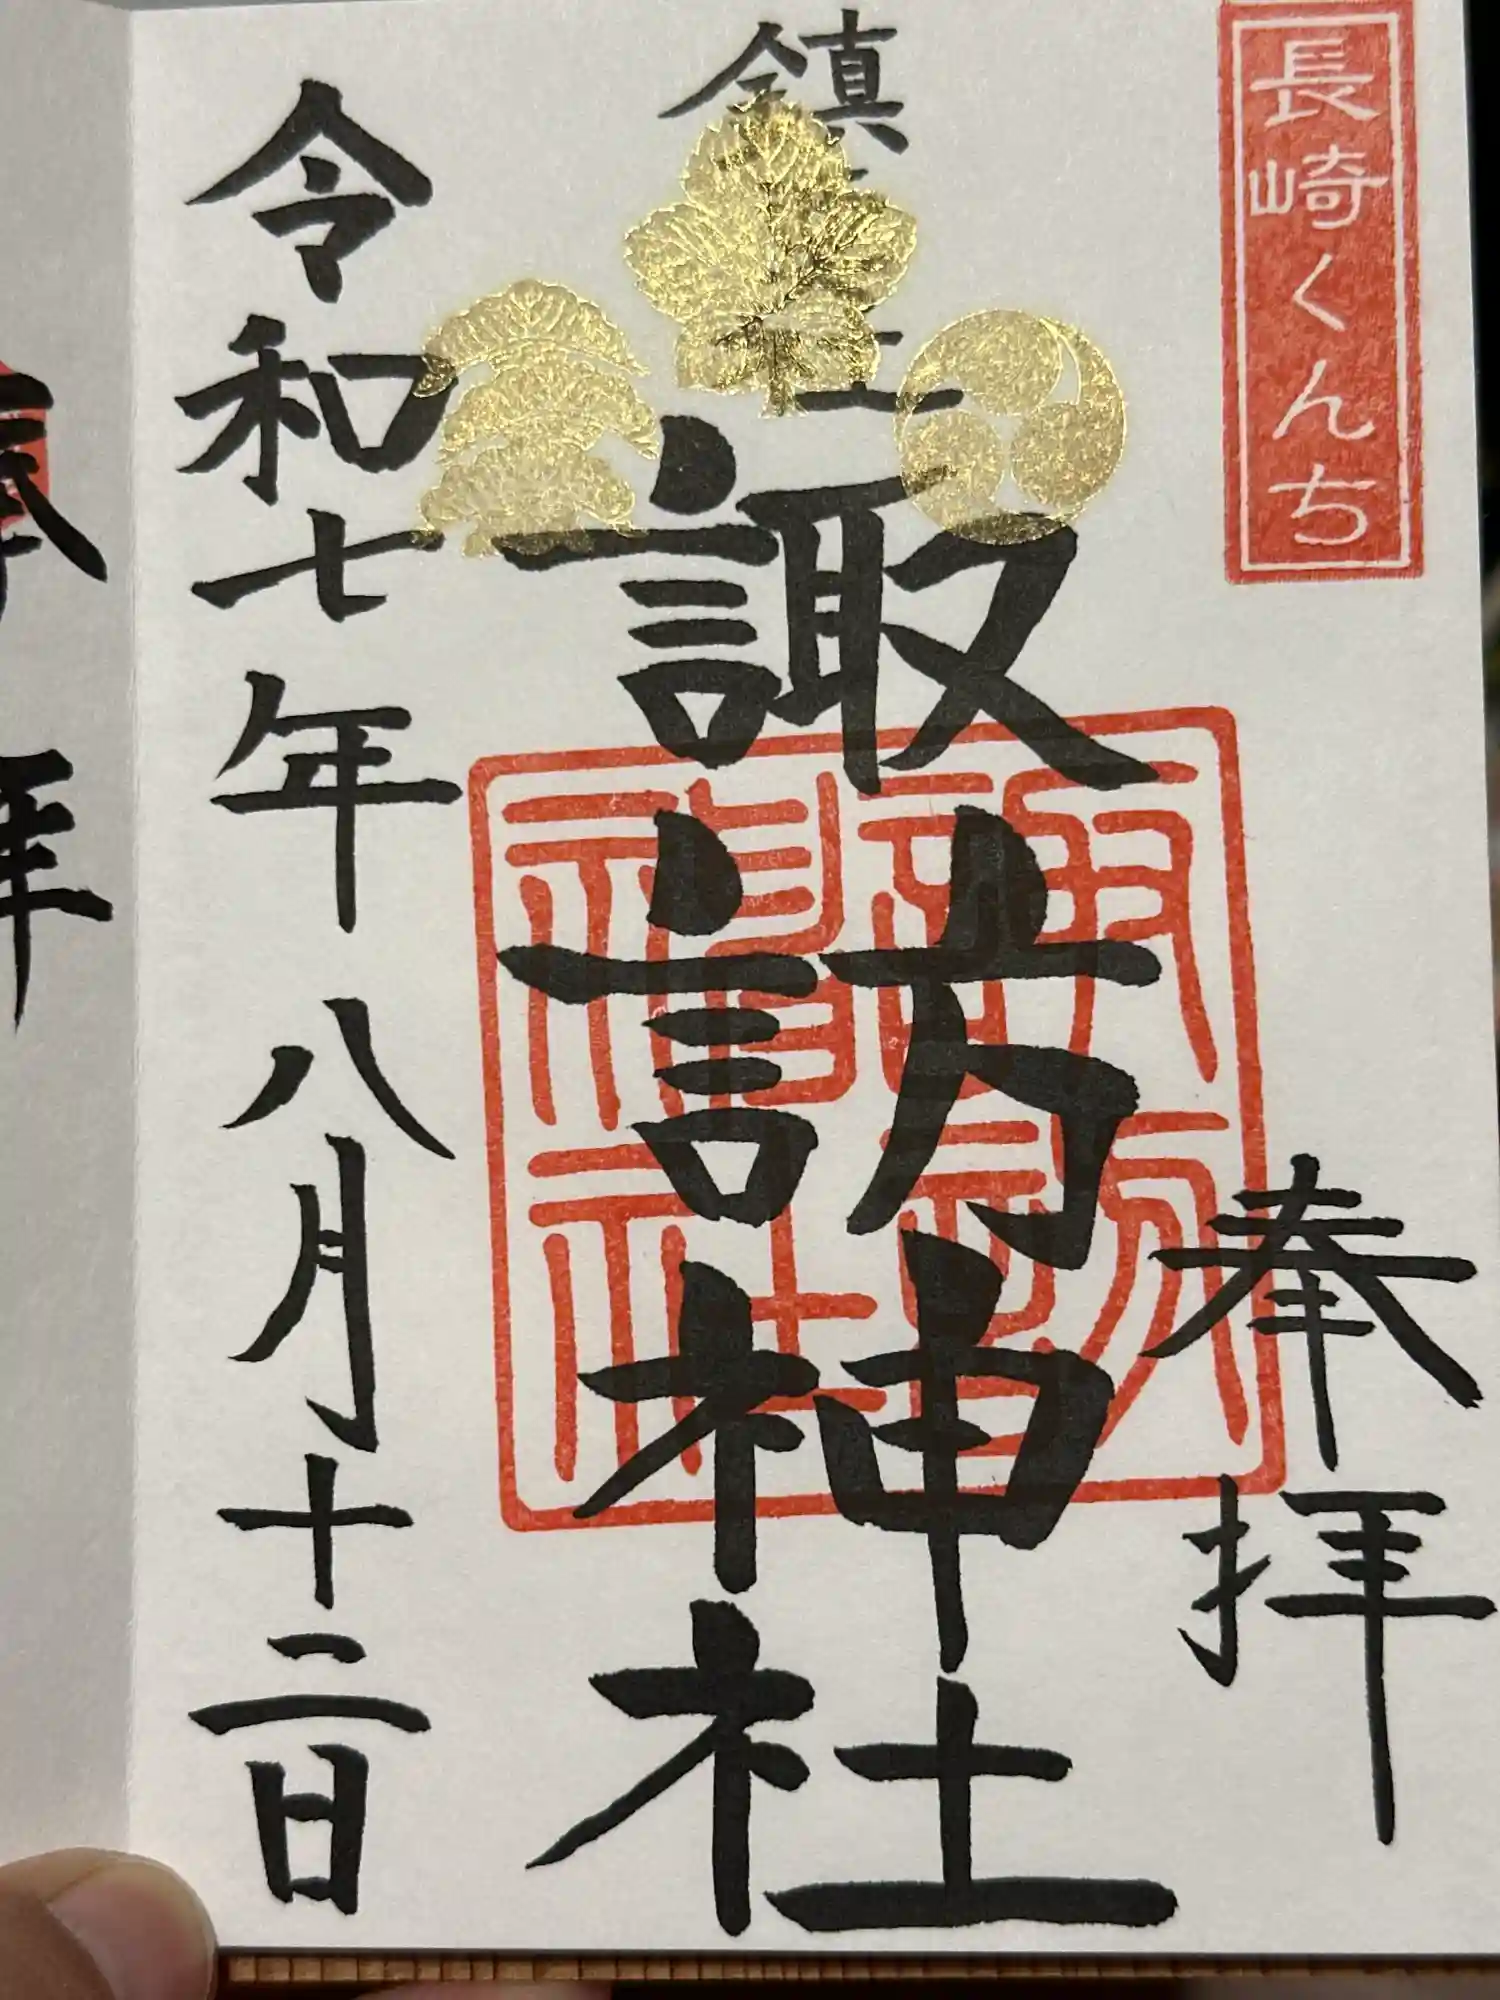 長崎くんち
奉拝
鎮
諏訪神社
諏訪神社
令和七年八月十二日
奉拝